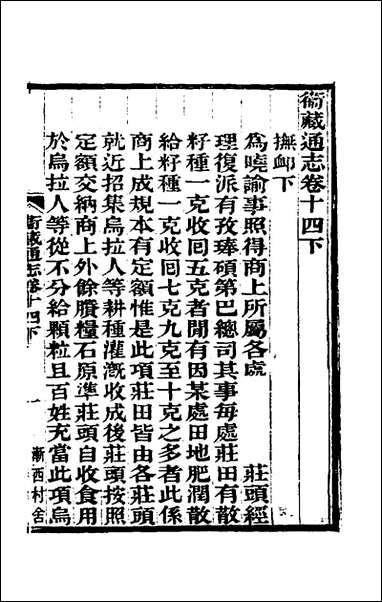 衞藏通志卷十四下
撫卹下
為曉諭事照得商上所屬各處　　　　莊頭經
理復派有孜琫碩第巴總司其事每處莊田有散
籽種一克收囘五克者閒有因某處田地肥潤散
給籽種一克收囘七克九克至十克之多者此係
商上成規本有定額惟是此項莊田皆由各莊頭
就近招集烏拉人等耕種灌漑收成後莊頭按照
定額交納商上外餘賸糧石原準莊頭自收食用
於烏拉人等從不分給顆粒且百姓充當此項烏
衞藏通志卷十四下
一
漸西村舍